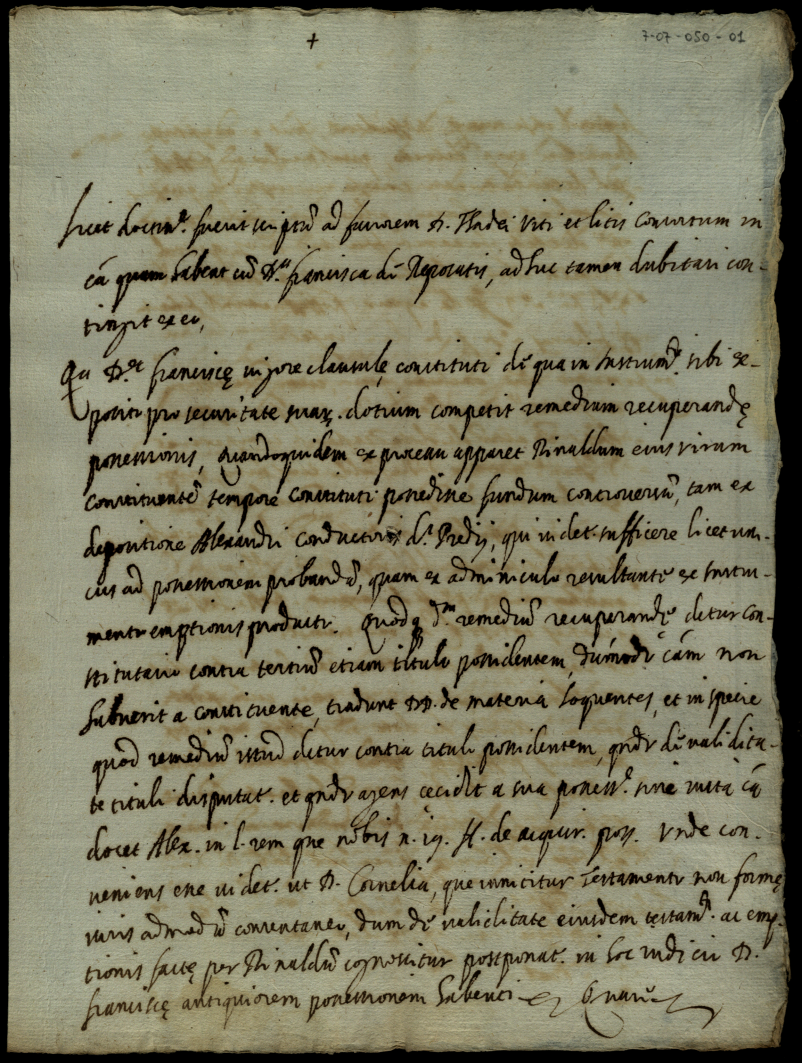 +
7-07-050-01
licet doctim.e fuerit scriptũ ad favorem D. Thadei Viti et litis consortum in
cã quam habent cũ D.na Francisca de Nepotatis, adhuc tamen dubitari con-
tingit ex eo,
Qa D.ae Franciscę vigore clausulę constituti de qua in Instrum.to sibi ex-
posito pro securitate suar. dotium competit remedium recuperandę
possessionis, Quandoquidem ex processu apparet Rinaldum eius virum
constituentẽ tempore constituti possedisse fundum controversũ, tam ex
depositione Alexandri conductoris d.i Predij, qui videt. sufficere licet uni-
cus ad possessionem probandã, quam ex adminiculo resultante ex Instru-
mento emptionis producto. Quodq d.m remediũ recuperandę detur con-
stitutario contra tertiũ etiam titulo possidentem, dummodo cãm non
habuerit a constituente, tradunt DD. de materia loquentes, et in specie
quod remediũ istud detur contra titulo possidentem, qndo de validita-
te tituli disputat. et qndo agens cecidit a sua possess.e sine iusta cã
docet Alex. in l. rem que nobis n. 19. ff. de acquir. poss. Unde con-
veniens esse videt. ut D. Cornelia, que innititur Testamento non formę
iuris admodũ consentaneo, dum de validitate eiusdem testam.ti ac emp-
tionis factę per Rinaldũ cognoscitur postponat. in hoc iudicio D.
Franciscę antiquiorem possessionem habenti